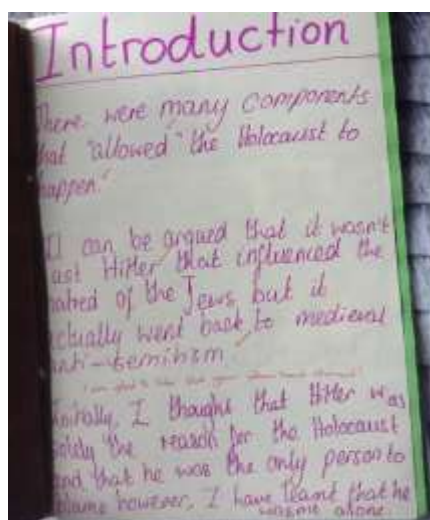 Introduction
There were many components
that "allowed" the Holocaust to
happen.'
It can be argued that it wasn't
just Hitler that influenced the
hatred of the Jews, but it
actually went back to medieval
anti-semitism.
Initially, I thought that Hitler was
solely the reason for the Holocaust
and that he was the only person to
blame however, I have learnt that he
alone